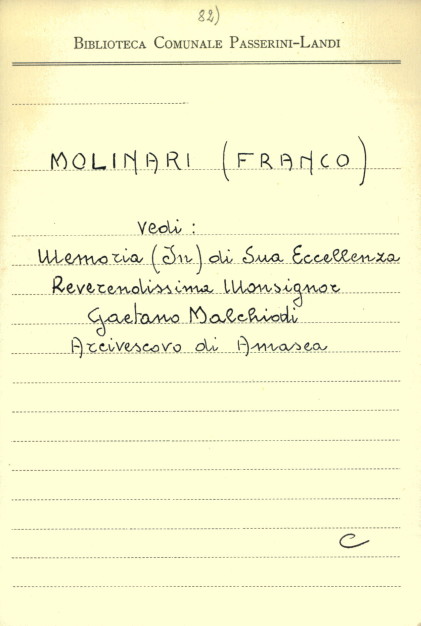 82)
BIBLIOTECA COMUNALE PASSERINI-LANDI
MOLINARI (FRANCO)
vedi :
Memoria (In) di Sua Eccellenza
Reverendissima Monsignor
Gaetano Malchiodi
Arcivescovo di Amasea
C